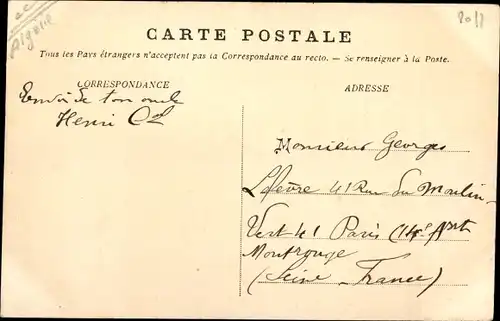 Algérie
2011
CARTE POSTALE
Tous les Pays étrangers n'acceptent pas la Correspondance au recto. — Se renseigner à la Poste.
CORRESPONDANCE
Envoi de ton oncle
Henri
ADRESSE
Monsieur Georges
Lefèvre 41 Rue du Moulin-
Vert 41 Paris (14e Art
Montrouge
(Seine - France)